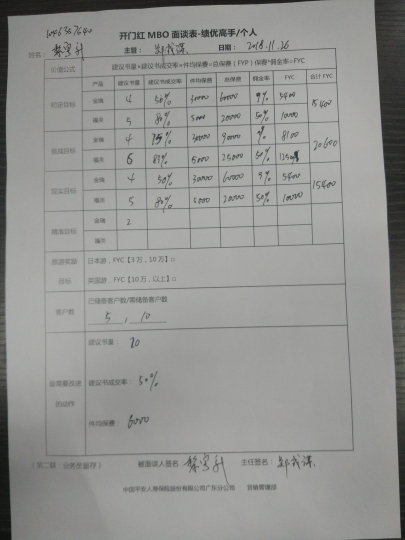 开门红 MBO 面谈表-绩优高手/个人
姓名： 主管： 日期：2018.11.26
价值公式 建议书量*建议书成交率=件均保费=总保费（FYP）保费*佣金率=FYC
产品 建议书量 建议书成交率 件均保费 总保费 佣金率 FYC 合计 FYC
4 50% 30000 60000 9% 5400 15400
5 80% 5000 20000 50% 10000
挑战目标 4 75% 30000 90000 9% 8100 20600
6 83% 5000 25000 50%
现实目标 4 50% 30000 60000 9% 5400 15400
5 80% 5000 20000 50% 10000
2
旅游奖励 日本游，FYC【3万，10万】□
目标 英国游，FYC【10万，以上】□
客户数 已储备客户数/需储备客户数
5，10
建议书量：20
需要改进的动作 建议书成交率：50%
件均保费：6000
（第二联：业务员留存） 被面谈人签名： 主任签名：
中国平安人寿保险股份有限公司广东分公司 营销管理部